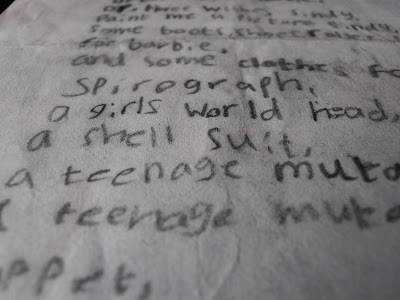 three wishes sindy,
Paint me a Picture sindy,
some boots, shoes
for barbie,
and some clothes fo
Spirograph,
a girls world head,
a shell suit,
a teenage muta
teenage muta
ppet,